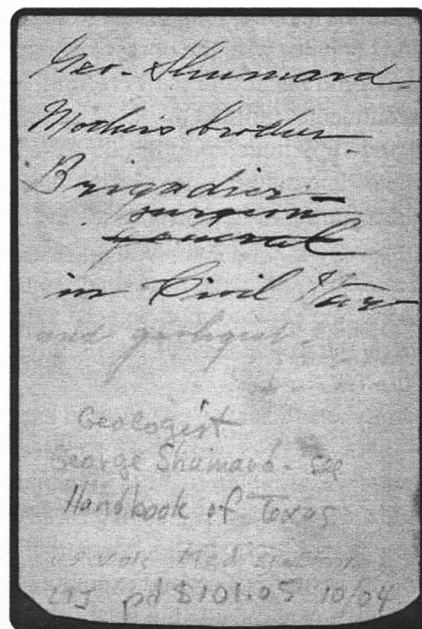 Geo. Shumard
Mother's brother
Brigadier
surgeon
general
in Civil War
and geologist.
Geologist
George Shumard - see
Handbook of Texas
US Vols Med
pd $101.05 10/04